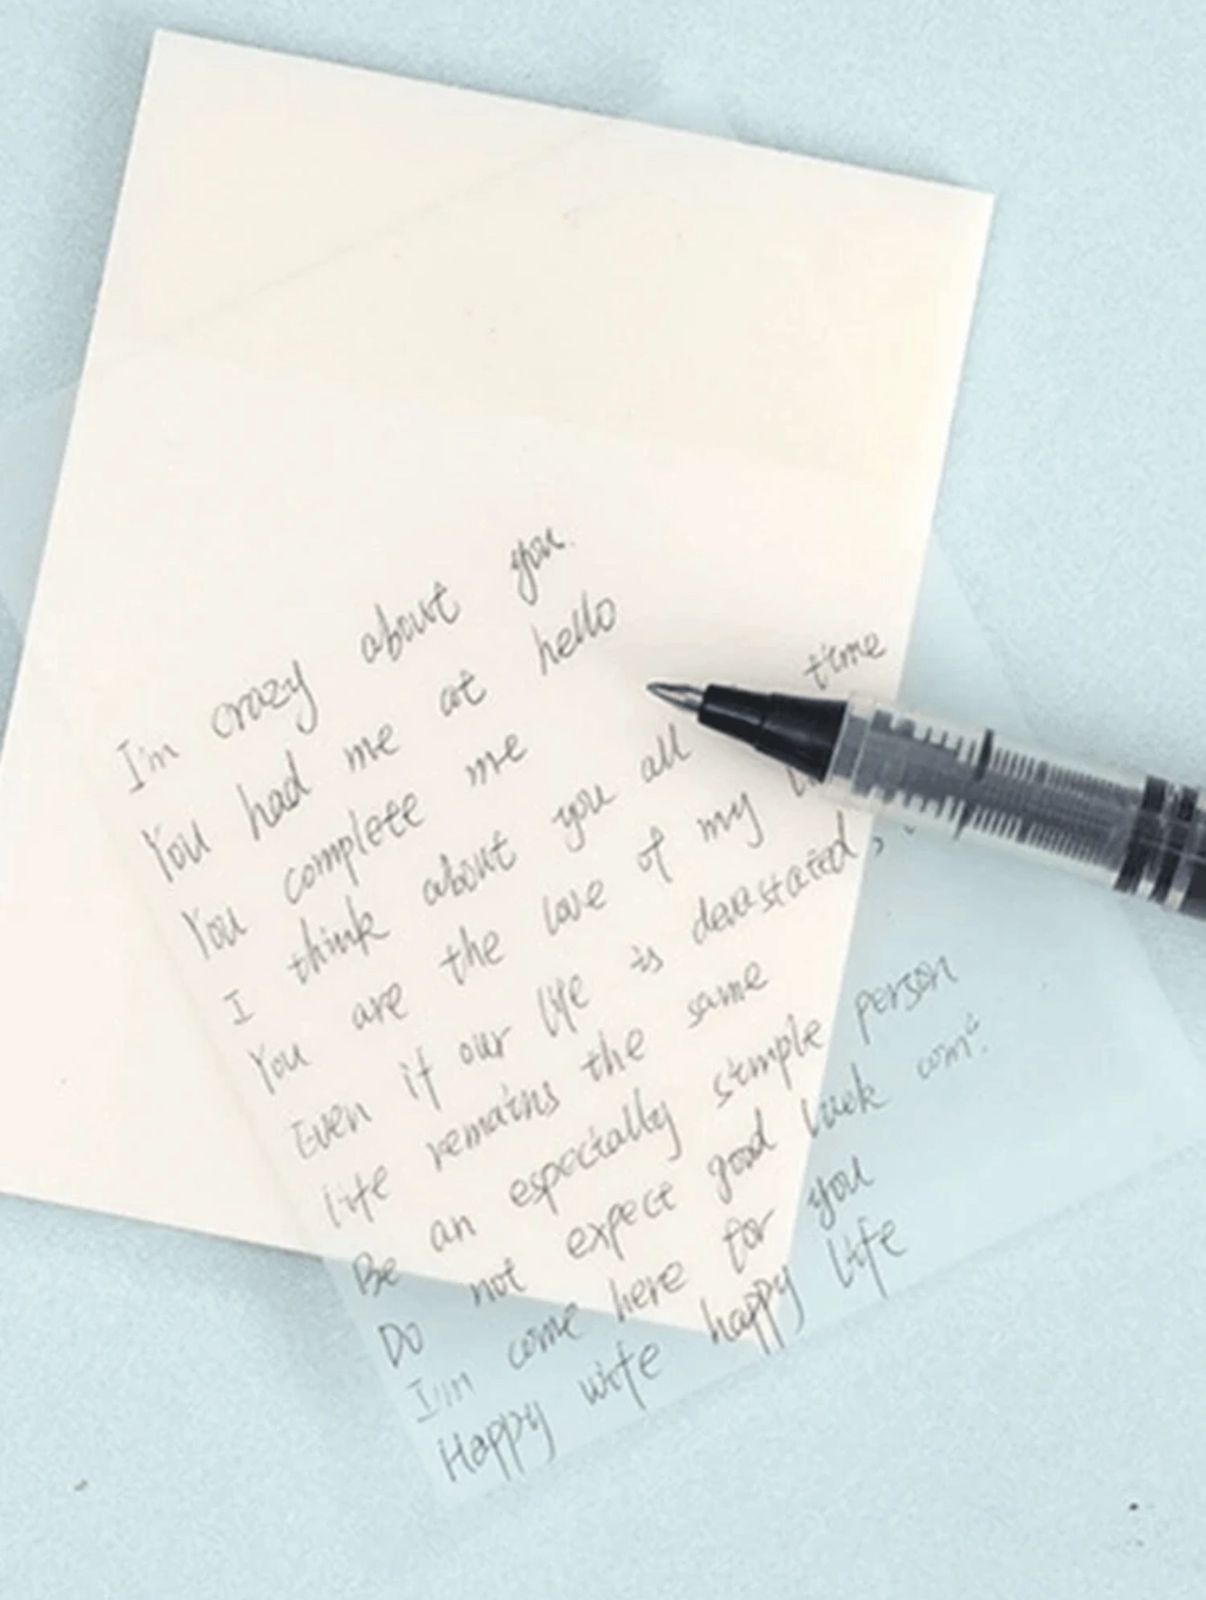 I'm crazy about you.
You had me at hello
You complete me
I think about you all time
You are the love of my
Even if our life is devastated,
life remains the same
Be an especially simple person
Do not expect good luck
I'm come here for you
Happy wife happy life